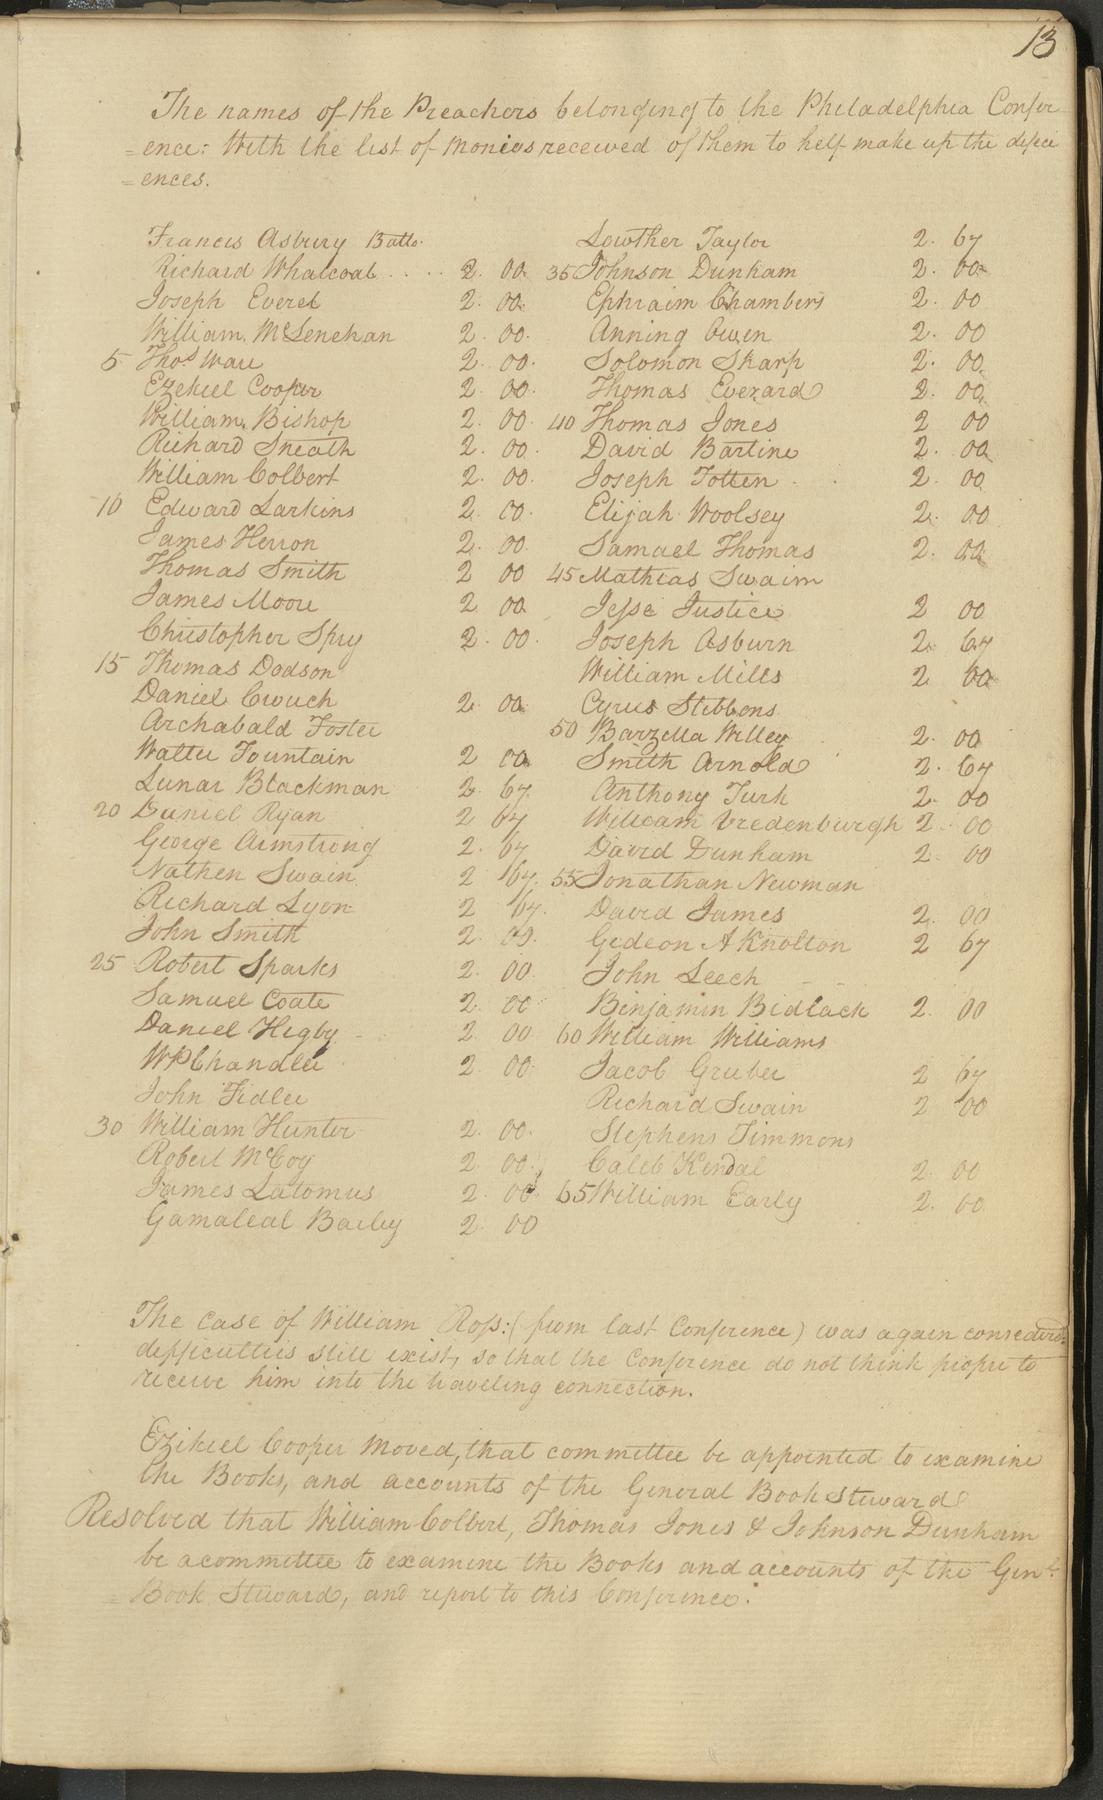 13
The names of the Preachers belonging to the Philadelphia Confer
=ence: With the list of monies received of them to help make up the defici
=ences.
Francis Asbury Balto.
Richard Whatcoat .... 2. 00.
Joseph Everet 2. 00.
William McLenehan 2. 00.
5 Thos Ware 2. 00.
Ezekiel Cooper 2. 00.
William Bishop 2. 00
Richard Sneath 2. 00.
William Colbert 2. 00.
10 Edward Larkins 2. 00.
James Herron 2. 00.
Thomas Smith 2 00
James Moore 2 00
Christopher Spry 2. 00.
15 Thomas Dodson
Daniel Crouch 2. 00.
Archabald Foster
Walter Fountain 2 00
Lunar Blackman 2. 67.
20 Daniel Ryan 2 67
George Armstrong 2. 67
Nathen Swain 2 67.
Richard Lyon 2 67.
John Smith 2 00.
25 Robert Sparks 2. 00.
Samuel Coate 2. 00
Daniel Higby 2. 00
WP Chandler 2. 00.
John Fidler
30 William Hunter 2. 00.
Robert McCoy 2 00.
James Latomus 2. 00
Gamaleal Bailey 2. 00
Lowther Taylor 2. 67
35 Johnson Dunham 2. 00
Ephraim Chambers 2. 00
Anning Owen 2. 00
Solomon Sharp 2. 00.
Thomas Everard 2. 00.
40 Thomas Jones 2 00
David Bartine 2. 00
Joseph Totten 2. 00
Elijah Woolsey 2. 00
Samuel Thomas 2. 00
45 Mathias Swaim
Jesse Justice 2 00
Joseph Osburn 2. 67
William Mills 2 00
Cyrus Stebbens
50 Barzella Willey 2. 00
Smith Arnold 2. 67
Anthony Turk 2. 00
William Vredenburgh 2. 00
David Dunham 2. 00
55 Jonathan Newman
David James 2. 00
Gedeon A Knolton 2 67
John Leech
Binjamin Bidlack 2. 00
60 William Williams
Jacob Gruber 2 67
Richard Swain 2 00
Stephens Timmons
Caleb Kendal 2. 00
65 William Early 2. 00
The case of William Ross: (from last Conference) was again considered:
difficulties still exist, so that the Conference do not think proper to
receive him into the traveling connection.
Ezikiel Cooper moved, that committee be appointed to examine
the Books, and accounts of the General Book Steward
Resolved that William Colbert, Thomas Jones & Johnson Dunham
be a committee to examine the Books and accounts of the Genl.
=Book Steward, and report to this Conference.